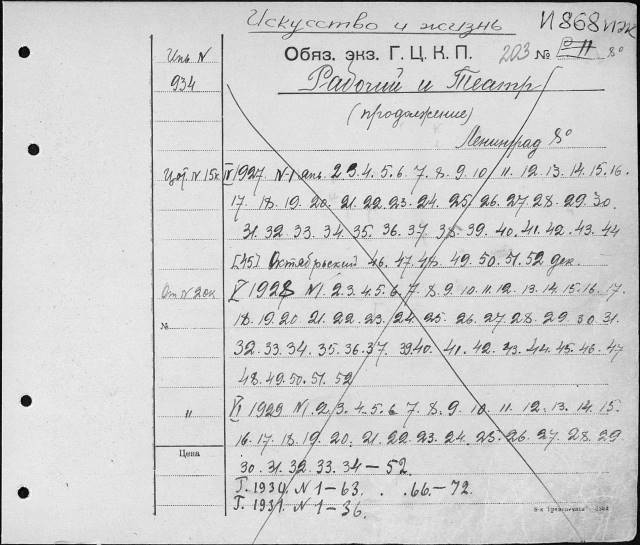 Искусство и жизнь И 868 иэк
Обяз. экз. Г. Ц. К. П. 203 № 11 8°
Инв. N
934
Рабочий и Театр
(продолжение)
Ленинград 8°
IV 1927 N-1 янв. 2 3. 4. 5. 6. 7. 8. 9. 10. 11. 12. 13. 14. 15. 16.
17. 18. 19. 20. 21. 22. 23. 24. 25. 26. 27. 28. 29. 30
31. 32. 33. 34. 35. 36. 37. 38. 39. 40. 41. 42. 43. 44
[45] Октябрьский 46. 47. 48. 49. 50. 51. 52 дек.
V 1928 N1. 2. 3. 4. 5. 6. 7. 8. 9. 10. 11. 12. 13. 14. 15. 16. 17.
№ 18. 19. 20. 21. 22. 23. 24. 25. 26. 27. 28. 29. 30. 31.
32. 33. 34. 35. 36. 37. 39. 40. 41. 42. 43. 44. 45. 46. 47
48. 49. 50. 51. 52
" VI 1929 N1. 2. 3. 4. 5. 6. 7. 8. 9. 10. 11. 12. 13. 14. 15.
16. 17. 18. 19. 20. 21. 22. 23. 24. 25. 26. 27. 28. 29
Цена
30. 31. 32. 33. 34 — 52.
Г. 1930. N 1-63. . . 66-72.
Г. 1931. N 1-36.